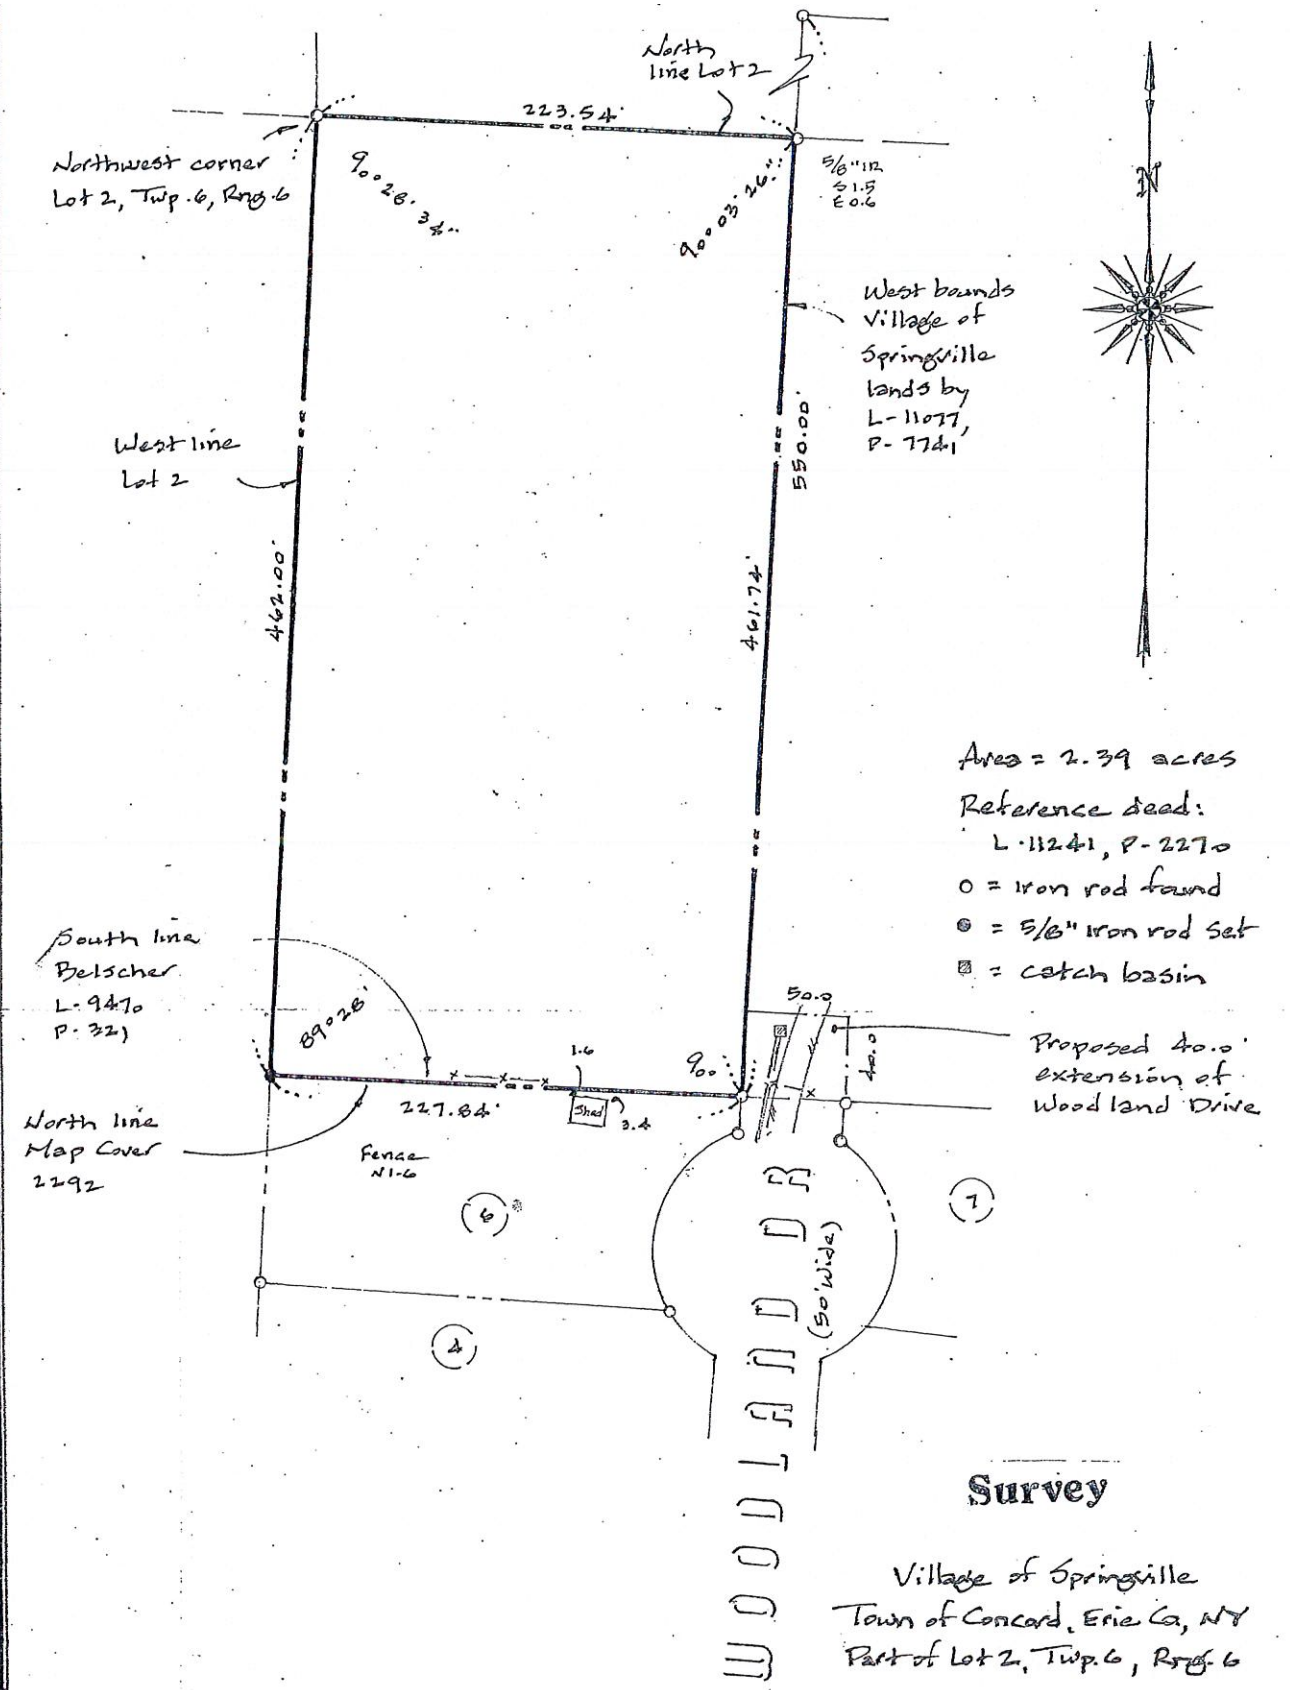 North
line Lot 2
223.54'
Northwest corner
Lot 2, Twp. 6, Rng. 6
90°28'34"
90°03'26"
5/8" IR
S 1.5
E 0.6
N
West bounds
Village of
Springville
lands by
L-11077,
P-7741
550.00'
West line
Lot 2
462.00'
461.74'
Area = 2.39 acres
Reference deed:
L-11241, P-2270
O = iron rod found
= 5/8" iron rod set
= catch basin
South line
Belscher
L-9470
P-321
89°28'
50.0
1.6
90°
40.0
Proposed 40.0'
extension of
Woodland Drive
227.84'
Shed
3.4
North line
Map Cover
2292
Fence
N1.6
7
4
WOODLAND DR
(50' Wide)
Survey
Village of Springville
Town of Concord, Erie Co, NY
Part of Lot 2, Twp. 6, Rng. 6